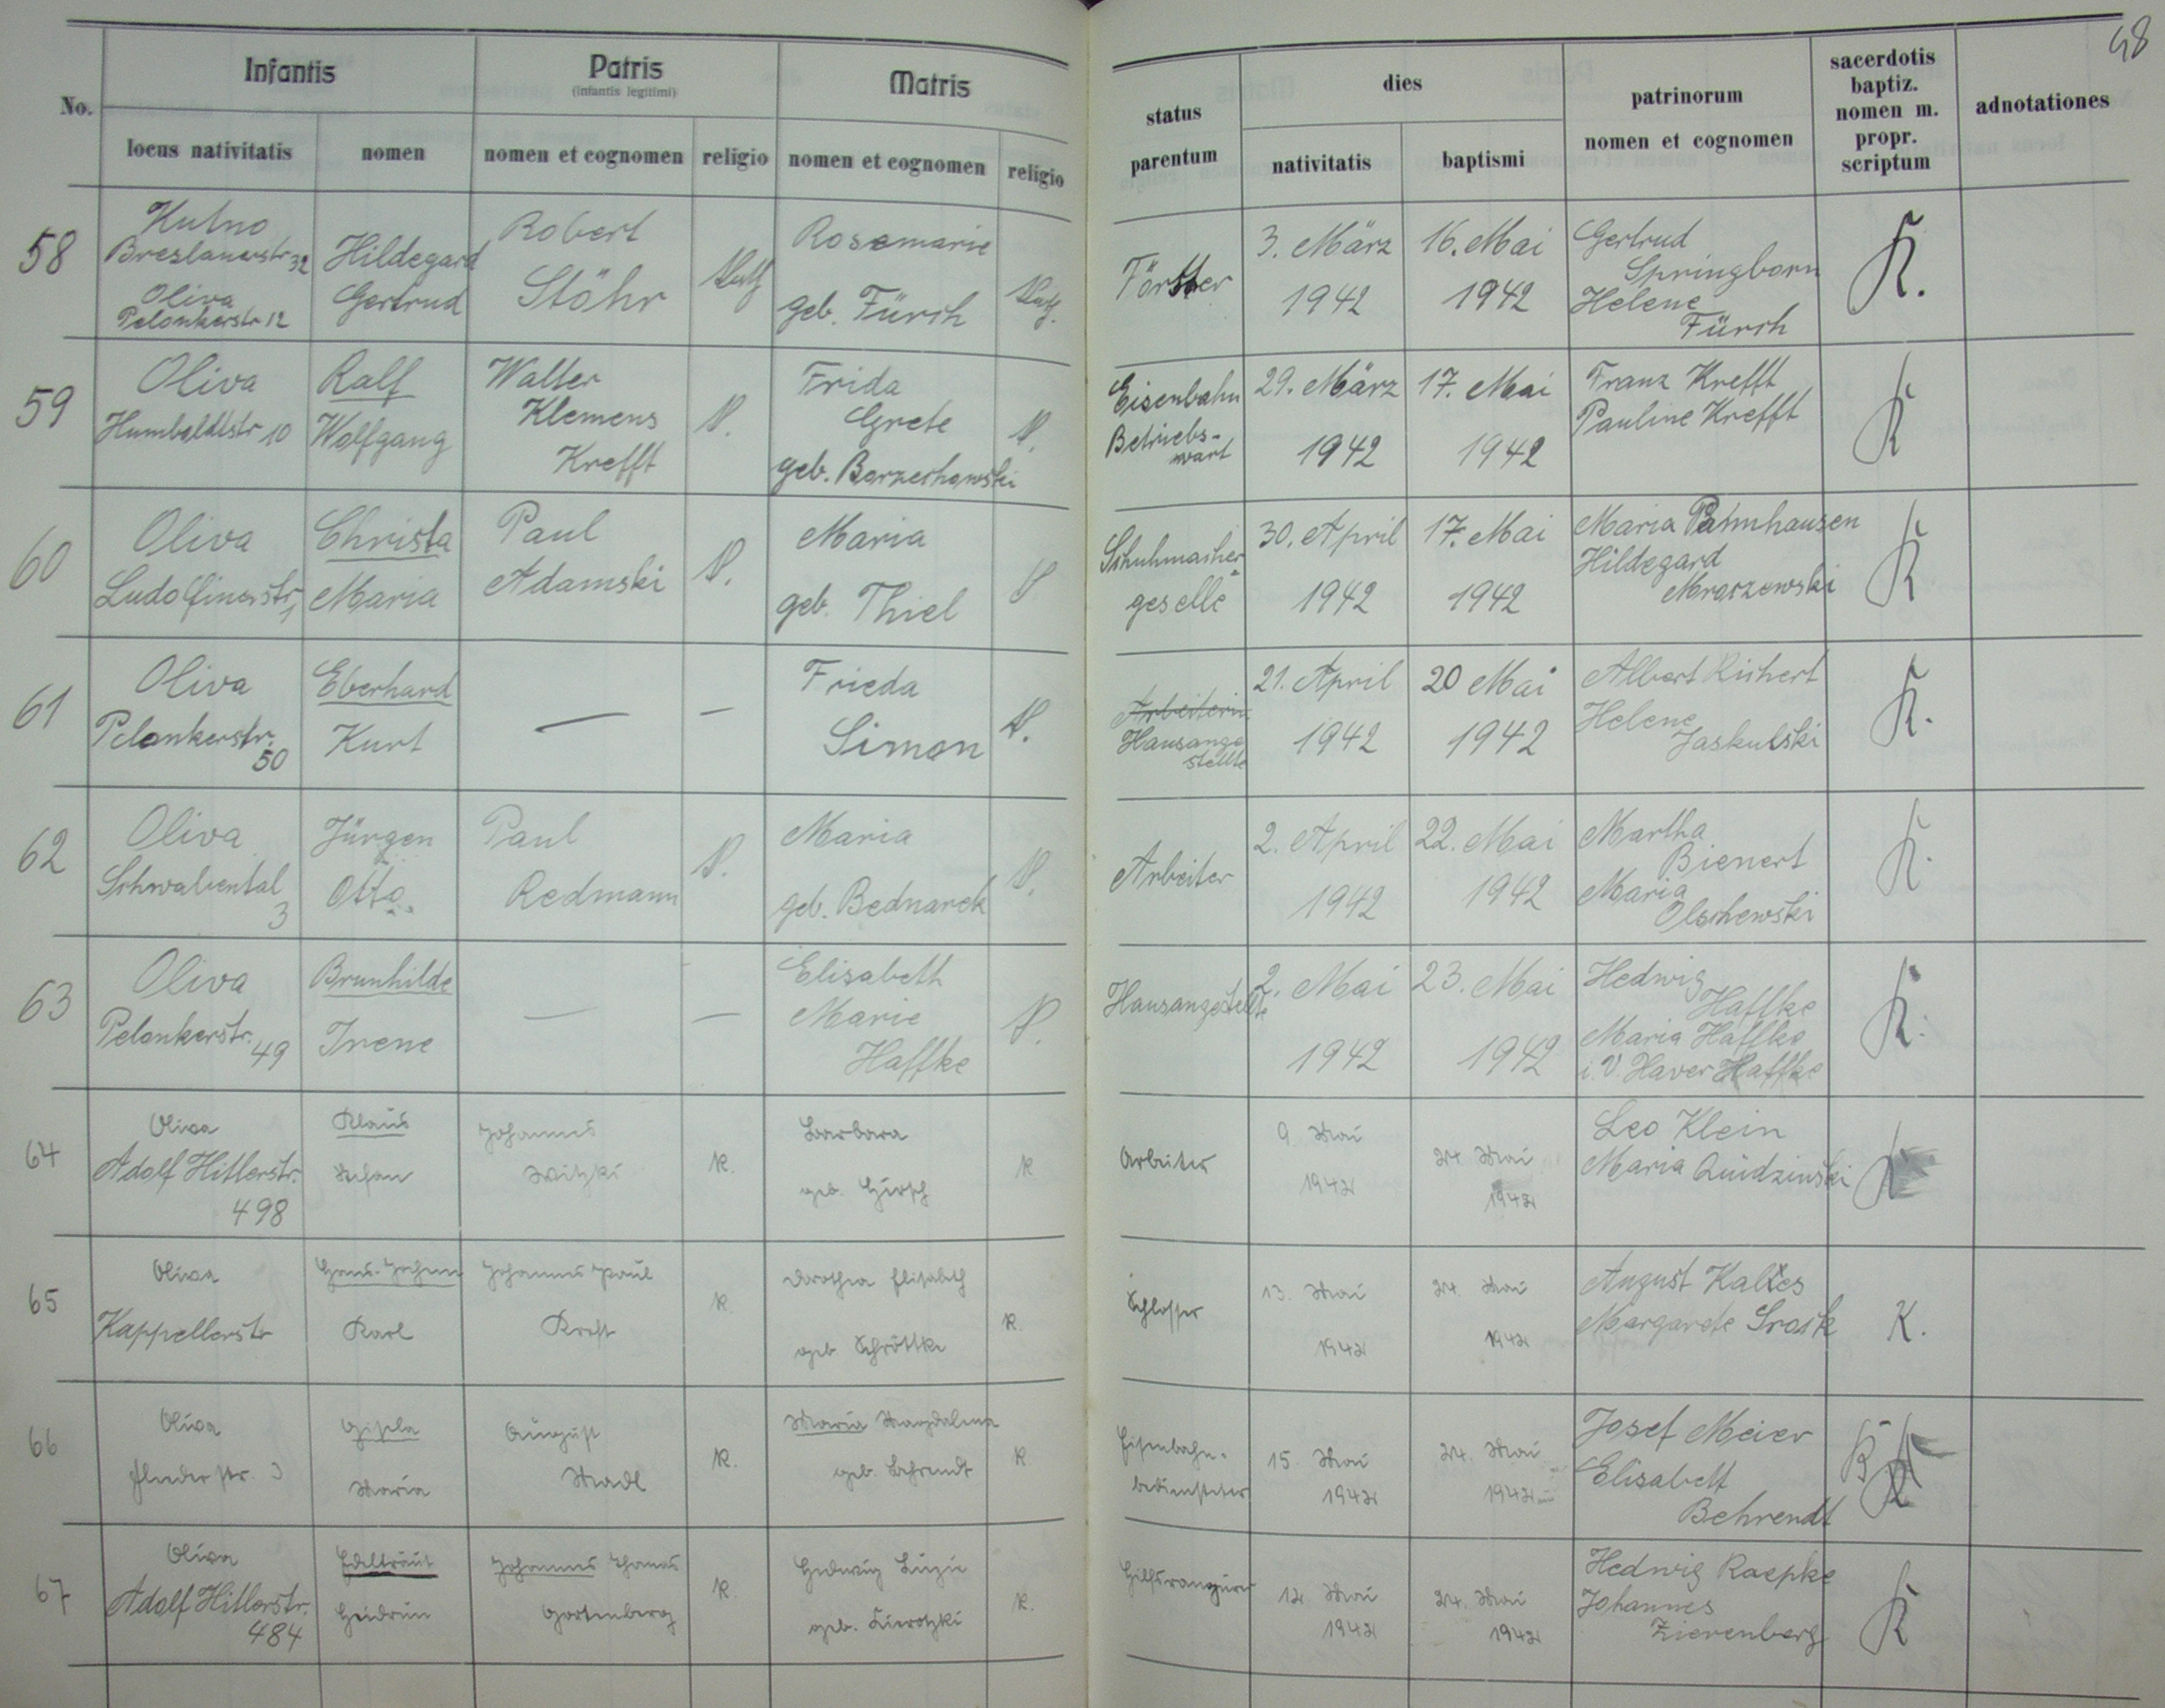 48
Infantis
Patris
(infantis legitimi)
Matris
No.
locus nativitatis
nomen
nomen et cognomen
religio
nomen et cognomen
religio
status
parentum
dies
nativitatis
baptismi
patrinorum
nomen et cognomen
sacerdotis
baptiz.
nomen m.
propr.
scriptum
adnotationes
58
Kutno
Breslauerstr 32
Oliva
Pelonkerstr 12
Hildegard
Gertrud
Robert
Stöhr
Kath
Rosemarie
geb. Fürch
Kath.
Förster
3. März
1942
16. Mai
1942
Gertrud
Springborn
Helene
Fürch
K.
59
Oliva
Humboldtstr 10
Ralf
Wolfgang
Walter
Klemens
Krefft
K.
Frida
Grete
geb. Barzechowski
K.
Eisenbahn
Betriebs-
wart
29. März
1942
17. Mai
1942
Franz Krefft
Pauline Krefft
K
60
Oliva
Ludolfinerstr 1
Christa
Maria
Paul
Adamski
K.
Maria
geb. Thiel
K
Schuhmacher-
geselle
30. April
1942
17. Mai
1942
Maria
Hildegard
Mraczewski
K
61
Oliva
Pelonkerstr.
50
Eberhard
Kurt
—
—
Frieda
Simon
K.
Arbeiterin
Hausange
stellte
21. April
1942
20 Mai
1942
Albert Richert
Helene
Jaskulski
K.
62
Oliva
Schwabental
3
Jürgen
Otto.
Paul
Redmann
K.
Maria
geb. Bednarek
K.
Arbeiter
2. April
1942
22. Mai
1942
Martha
Bienert
Maria
Olschewski
K.
63
Oliva
Pelonkerstr.
49
Brunhilde
Irene
—
—
Elisabeth
Marie
Haffke
K.
Hausangestellte
2. Mai
1942
23. Mai
1942
Hedwig
Haffke
Maria Haffke
i.V. Haver Haffke
K.
64
Oliva
Adolf Hitlerstr.
498
Klaus
Johannes
Witzki
K.
Barbara
geb. Hirsch
K
Arbeiter
9. Mai
1942
24. Mai
1942
Leo Klein
Maria Quidzinski
K
65
Oliva
Kappellerstr
Hans-Jochen
Karl
Johannes Paul
Kreft
K.
Dorothea Elisabeth
geb Schröttke
K.
Schlosser
13. Mai
1942
24. Mai
1942
August Kalkes
Margarete
K.
66
Oliva
Gisela
Maria
August
Madl
K.
Maria Magdalena
geb. Behrendt
K
Eisenbahn-
bediensteter
15. Mai
1942
24. Mai
1942
Josef Meier
Elisabeth
Behrendt
K
67
Oliva
Adolf Hitlerstr.
484
Edeltraut
Heidrun
Johannes Thomas
Gortenberg
K.
Hedwig Luzie
geb. Zierotzki
K.
Hilfsrangierer
12 Mai
1942
24. Mai
1942
Hedwig Raepke
Johannes
Zierenberg
K